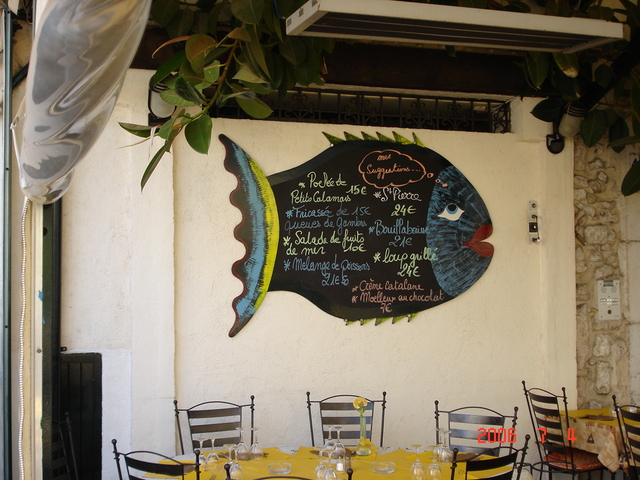 mes
Suggestions...
* Poêlée de
Petits Calamars 15€
* Fricassé de 15€
queues de Gambas
* Salade de fruits
de mer 16€
* Mélange de Poissons
21€50
* St Pierre
24€
* Bouillabaisse
21€
* Loup grillé
24€
* Crème Catalane
* Moelleux au chocolat
7€
2006 7 4